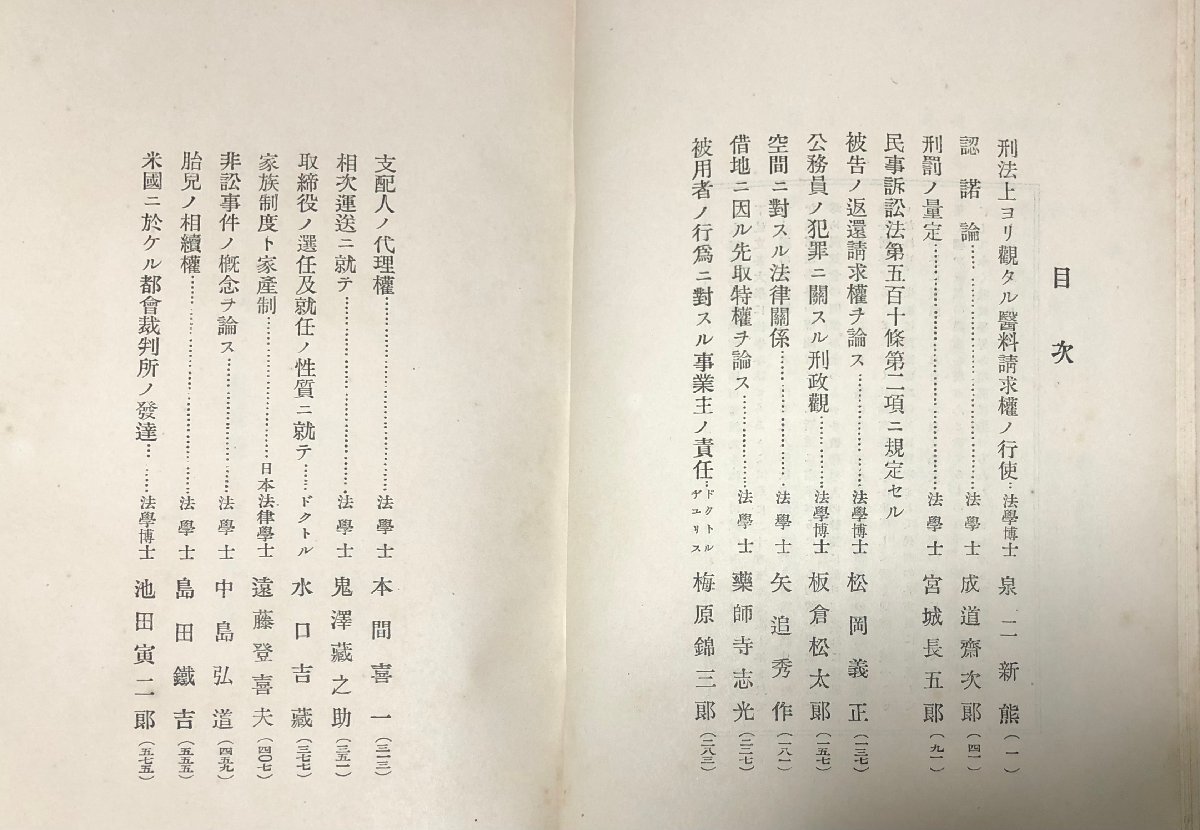 目次
刑法上ヨリ觀タル醫料請求權ノ行使…法學博士 泉二新熊（一）
認諾論……………………法學士 成道齋次郎（四一）
刑罰ノ量定……………………法學士 宮城長五郎（九一）
民事訴訟法第五百十條第二項ニ規定セル
被告ノ返還請求權ヲ論ス……………法學博士 松岡義正（一三七）
公務員ノ犯罪ニ關スル刑政觀…………法學博士 板倉松太郎（一五七）
空間ニ對スル法律關係………………法學士 矢追秀作（一八一）
借地ニ因ル先取特權ヲ論ス……………法學士 藥師寺志光（二二七）
被用者ノ行爲ニ對スル事業主ノ責任…ドクトルヂユリス 梅原錦三郎（二八三）
支配人ノ代理權……………………法學士 本間喜一（三一三）
相次運送ニ就テ……………………法學士 鬼澤藏之助（三五一）
取締役ノ選任及就任ノ性質ニ就テ……ドクトル 水口吉藏（三七七）
家族制度ト家產制…………………日本法律學士 遠藤登喜夫（四〇七）
非訟事件ノ槪念ヲ論ス………………法學士 中島弘道（四五九）
胎兒ノ相續權……………………法學士 島田鐵吉（五五五）
米國ニ於ケル都會裁判所ノ發達……法學博士 池田寅二郎（五七五）